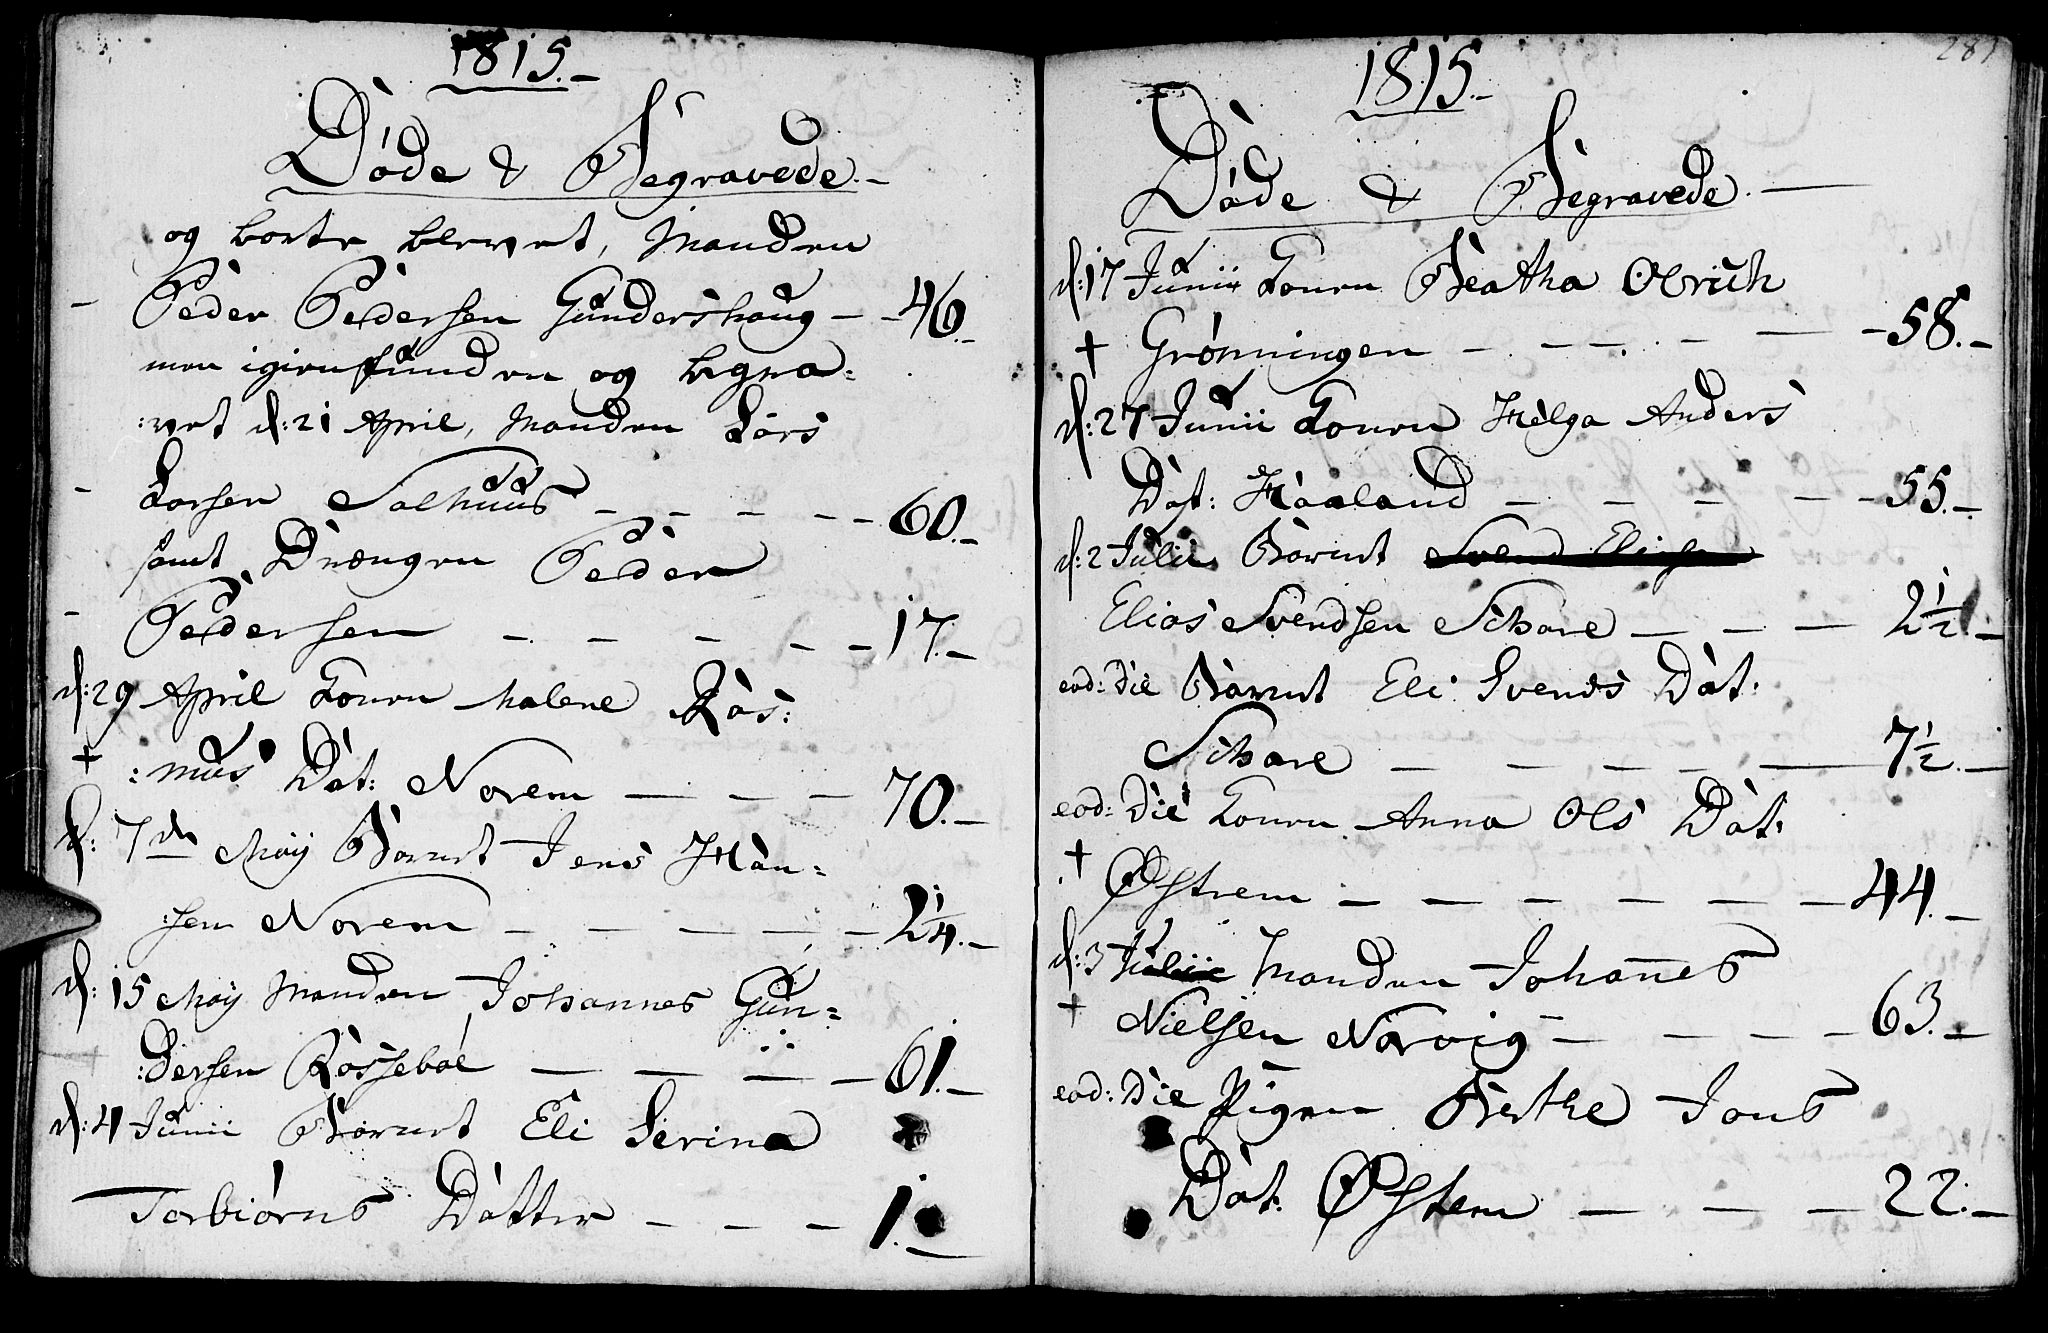 1815.-
Døde & Begravede.-
og borte blevet, Manden
- Peder Pedersen Gundershaug - - 46.-
men igienfunden og begra=
:vet d: 21 April, Manden Lars
- Larsen Salhuus - - - - - 60.-
samt Drængen Peder
- Pedersen - - - - - 17.-
d: 29 April Konen Malene Ras:
+ :mus Dat: Norem - - - 70.-
d: 7de Maij Barnet Jens Han=
:sen Norem - - - - - 2 1/4.-
d: 15 Maij Manden Johannes Gun=
:dersen Røssebøe - - - - 61.-
d: 4 Junii Barnet Eli Serina
Torbiørns Datter - - - 1.-
281
1815.-
Døde & Begravede.-
d: 17 Junii Konen Beatha Olrich
+ Grønningen - - - - - - 58.-
d: 27 Junii Konen Helga Anders
Dat: Haaland - - - - - 55.-
d: 2 Julii Barnet Svend Eliasen
Elias Svendsen Schare - - - 2 1/2.-
eod: Die Barnet Eli Svends Dat:
Schare - - - - - 7 1/2.-
eod: Die Konen Anna Ols Dat:
+ Østrem - - - - - - 44.-
d: 3 Julii Manden Johannes
+ Nielsen Nørvig - - - - 63.-
eod: Die Pigen Berthe Jons
Dat: Østrem - - - 22.-